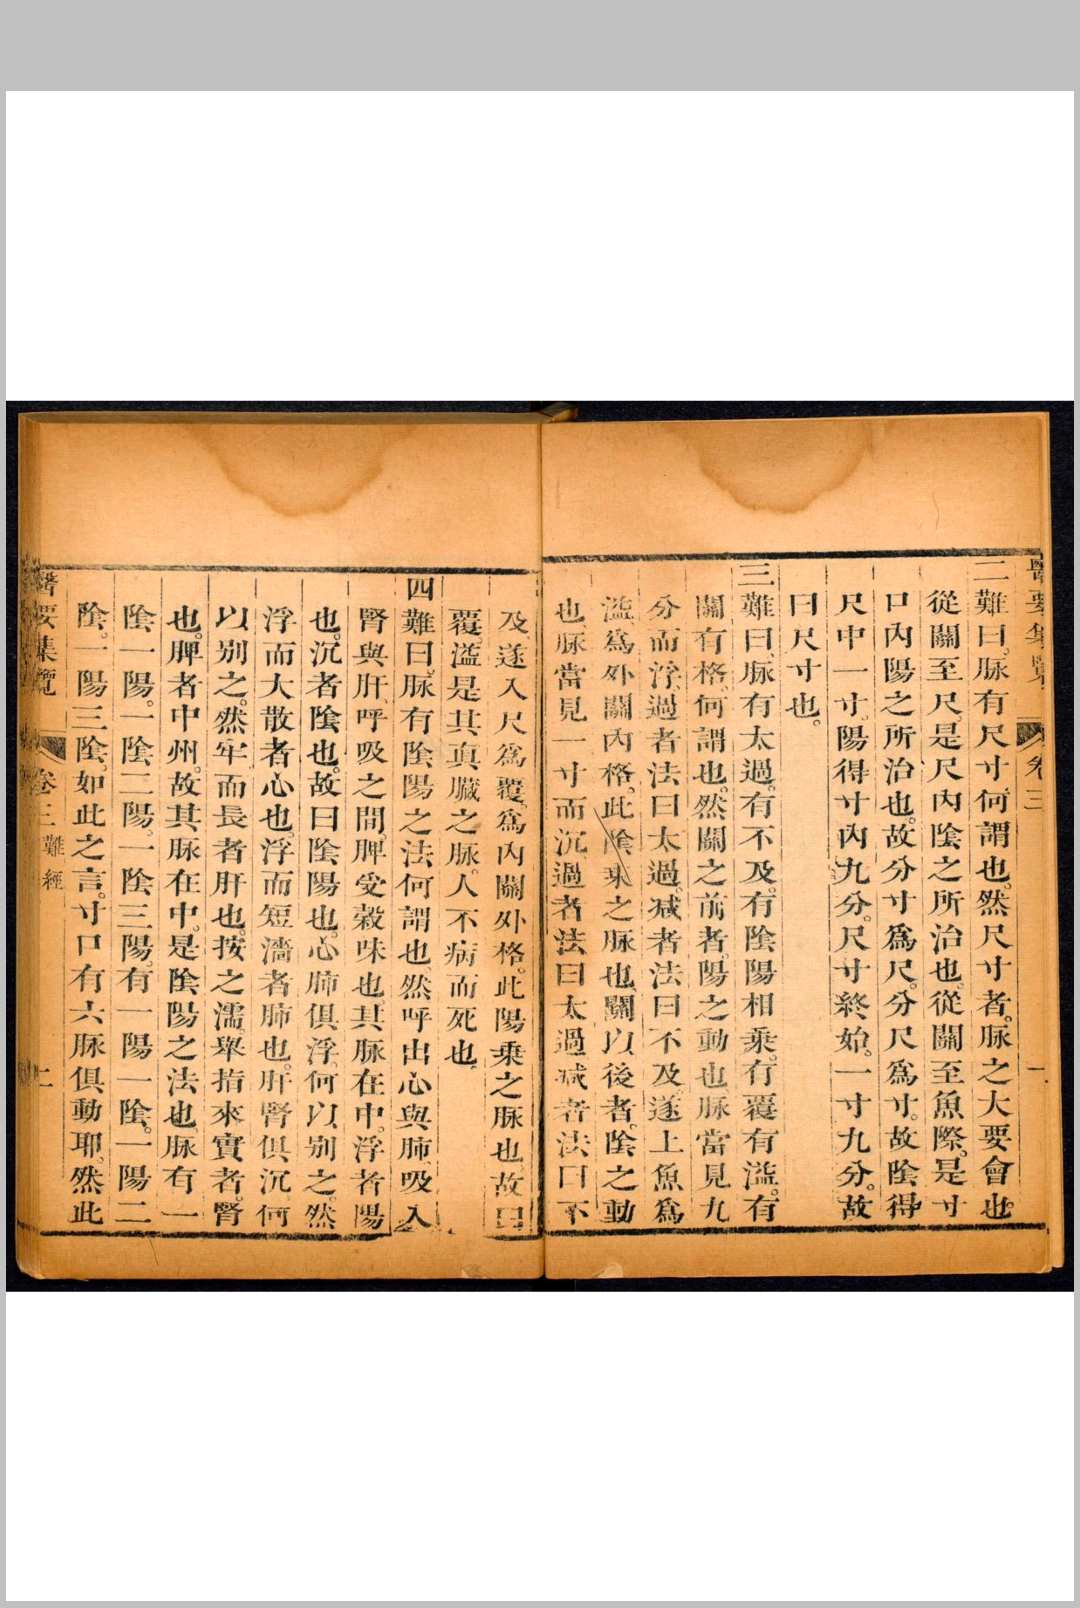 醫要集覽 卷三 一
二難曰。脉有尺寸。何謂也。然尺寸者。脉之大要會也。
從關至尺。是尺內陰之所治也。從關至魚際。是寸
口內陽之所治也。故分寸爲尺。分尺爲寸。故陰得
尺中一寸。陽得寸內九分。尺寸終始。一寸九分。故
曰尺寸也。
三難曰。脉有太過。有不及。有陰陽相乗。有覆有溢。有
關有格。何謂也。然關之前者。陽之動也。脉當見九
分而浮。過者法曰太過。减者法曰不及。遂上魚爲
溢。爲外關內格。此陰乗之脉也。關以後者。陰之動
也。脉當見一寸而沉。過者法曰太過。减者法曰不
及。遂入尺爲覆。爲內關外格。此陽乗之脉也。故曰
覆溢。是其真臟之脉。人不病而死也。
四難曰。脉有陰陽之法。何謂也。然呼出心與肺。吸入
腎與肝。呼吸之間。脾受穀味也。其脉在中。浮者陽
也。沉者陰也。故曰陰陽也。心肺俱浮。何以别之。然
浮而大散者心也。浮而短濇者肺也。肝腎俱沉。何
以别之。然牢而長者肝也。按之濡。舉指來實者。腎
也。脾者中州。故其脉在中。是陰陽之法也。脉有一
陰一陽。一陰二陽。一陰三陽。有一陽一陰。一陽二
陰。一陽三陰。如此之言。寸口有六脉俱動耶。然此
醫要集覽 卷三 難經 二